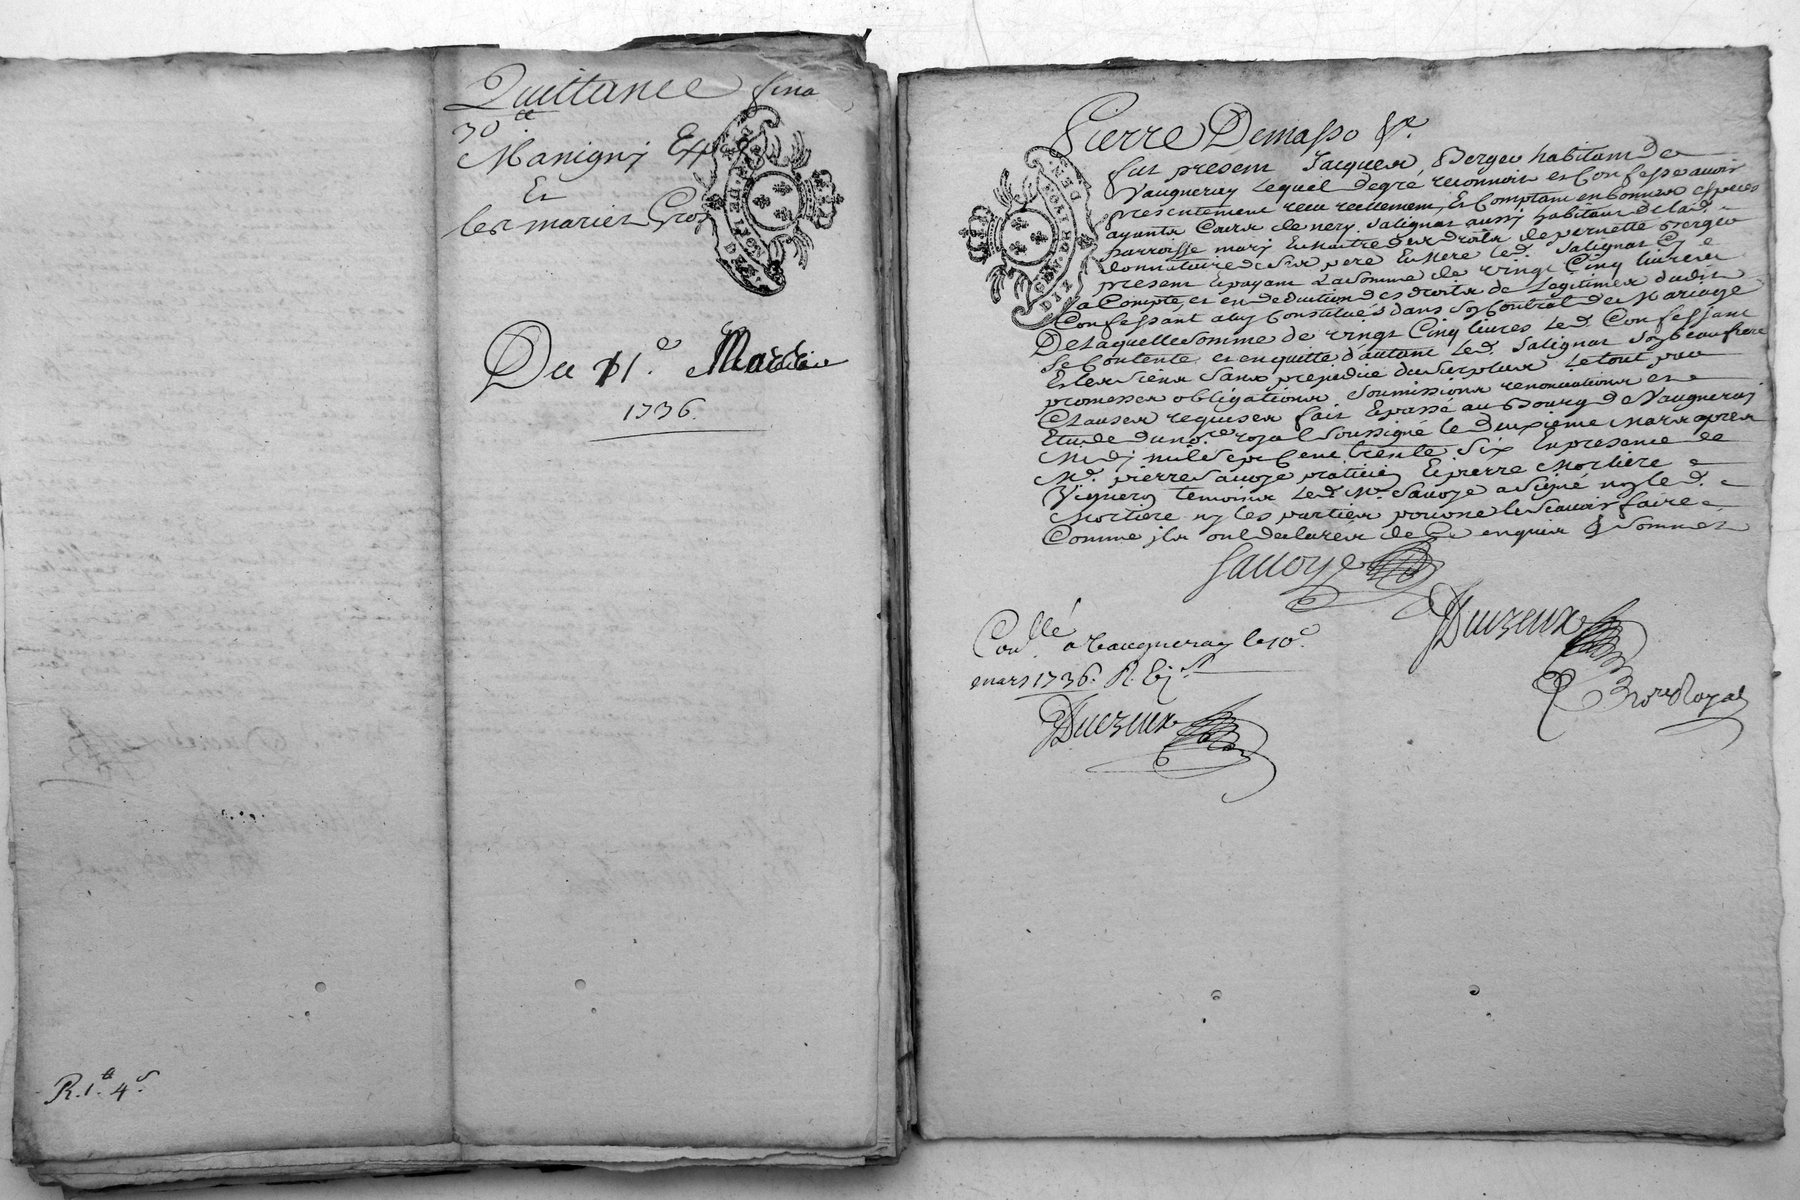 Quittance fina
30 tt
Manigny
Et
les mariez Groz
Du 11.e Mars
1736.
R. 1.tt 4.s
Pierre Demasso
fut present Jacques Berger habitant de
Vaugneray Lequel degré reconnoit et Confesse avoir
presentement receu reellement, et Comptant en bonnes especes
ayants Cours de nery Salignat aussi habitant de lad.
parroisse mary Et maitre des droits de pernette Berger
donnataire de ses pere Et Mere led. Salignat Cy
present Et payant La Somme de vingt Cinq livres
a Compte, et en deduction des droits de Legitimes dudit
Confessant a luy Constitués dans son Contrat de Mariage
De laquelle Somme de vingt Cinq livres Led. Confessant
Se Contente et en quitte d'autant Led. Salignat son beaufrere
Et les siens Sans prejudice du Surplus Le tout par
promesses obligations Soumissions renonciations et
Clauses requises fait Et passé au Bourg de Vaugneray
Etude du no.re royal Soussigné le deuxieme Mars apres
Midy mil Sept Cent trente Six En presence de
M.e pierre Savoye praticien Et pierre Mortiere
Vigneron temoins Led. M.e Savoye a Signé non led.
Mortiere ny les parties pour ne le Scavoir faire
Comme ils ont declarés de Ce enquis & Sommez
Savoye
Duvzeux
No.re Royal
Con.llé a Vaugneray le 10.e
mars 1736. R.
Duvzeux